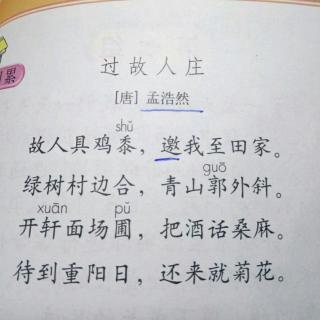 累
过故人庄
[唐] 孟浩然
shǔ
故人具鸡黍，邀我至田家。
guō
绿树村边合，青山郭外斜。
xuān pǔ
开轩面场圃，把酒话桑麻。
待到重阳日，还来就菊花。